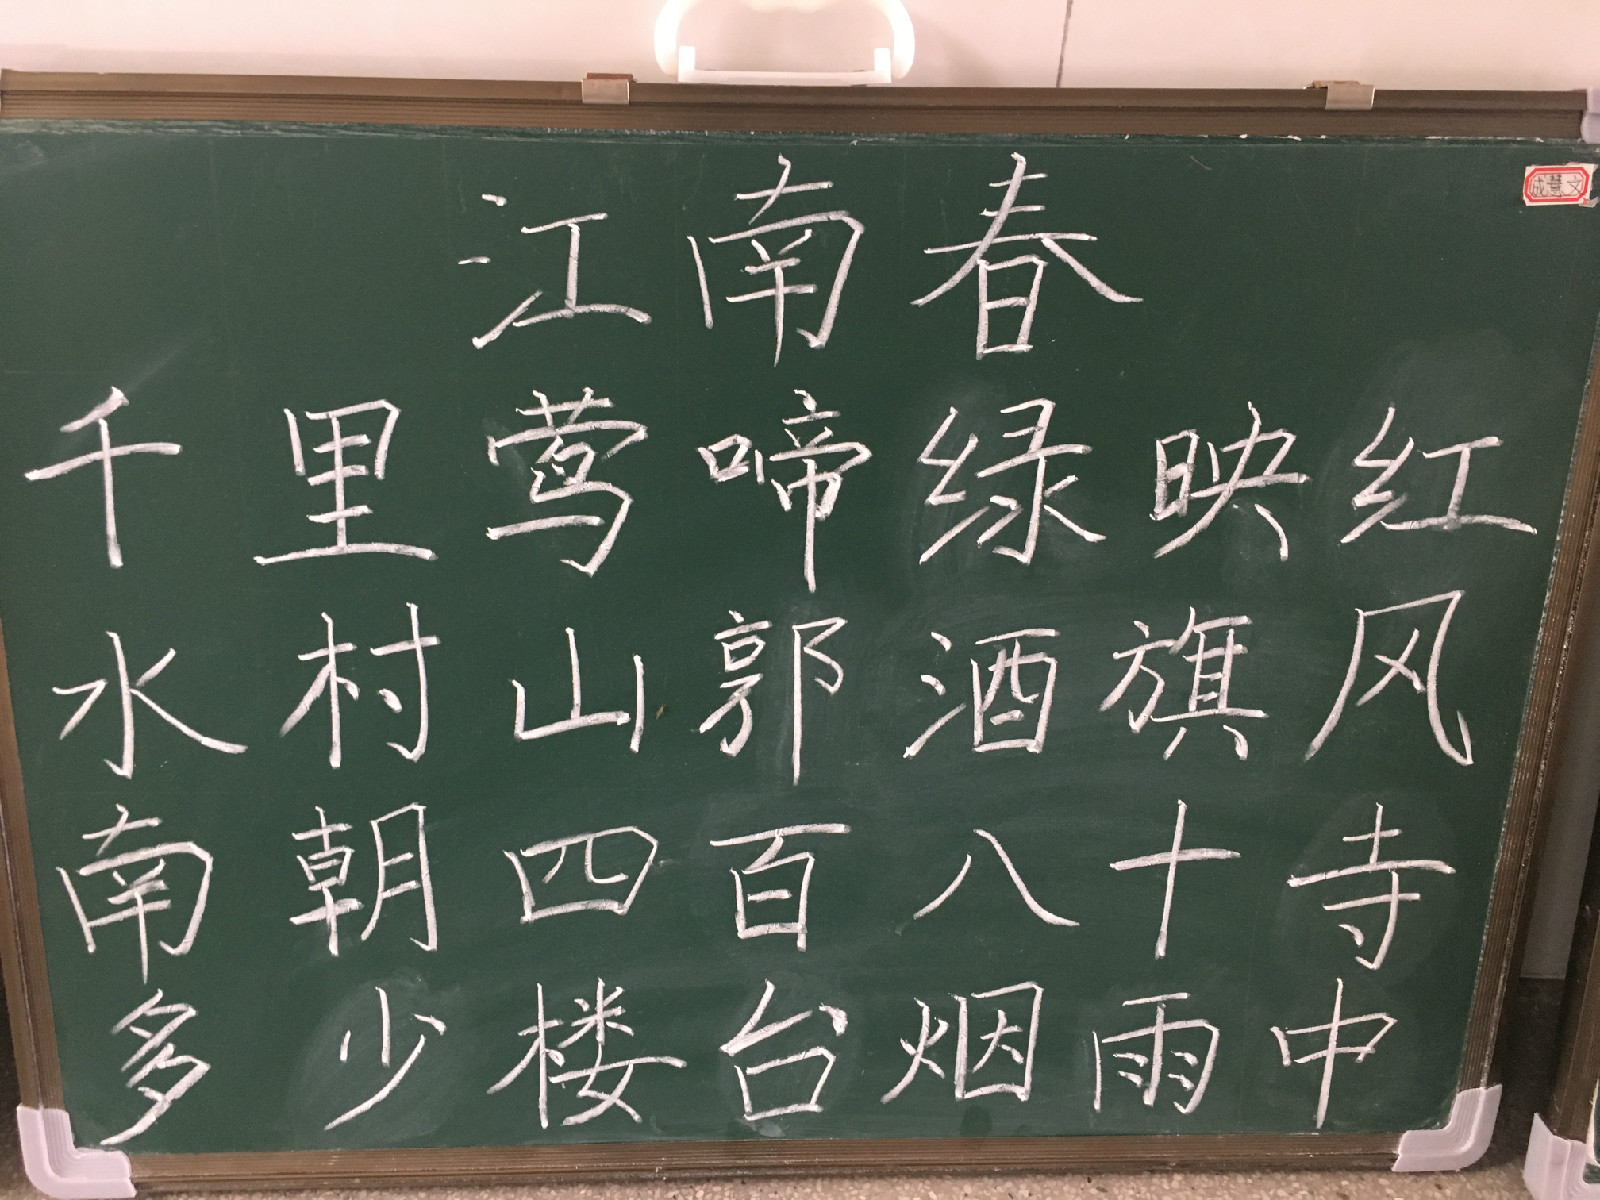 江南春
成慧文
千里莺啼绿映红
水村山郭酒旗风
南朝四百八十寺
多少楼台烟雨中